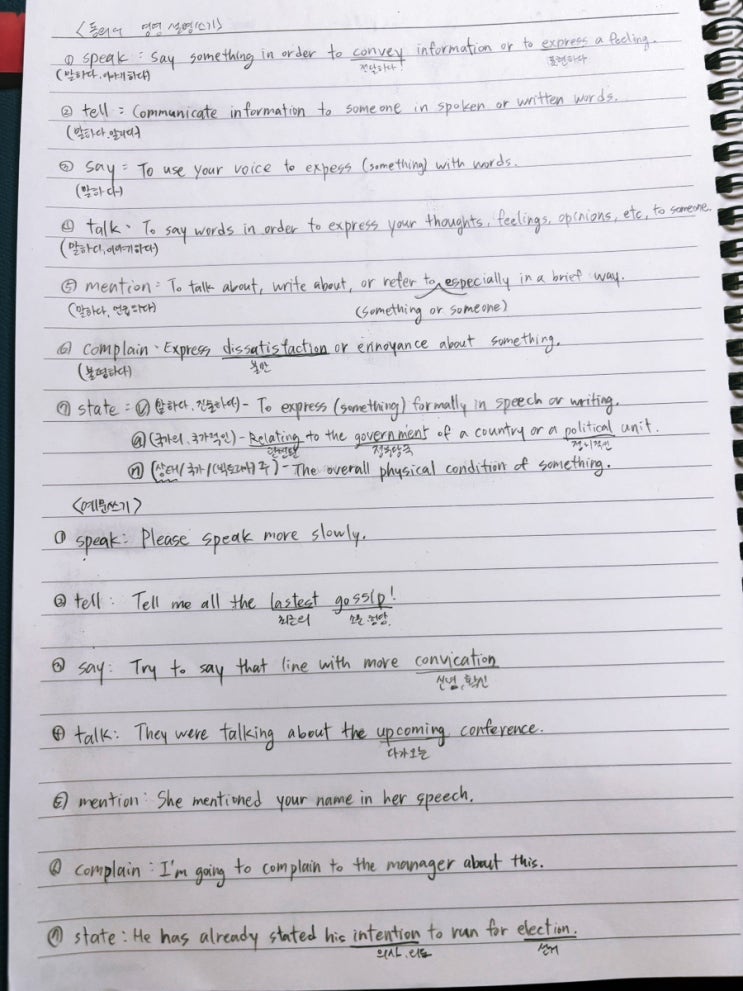 <동의어 영영 설명쓰기>
① speak : Say something in order to convey information or to express a feeling.
(말하다, 이야기하다) 전달하다 표현하다
② tell : Communicate information to someone in spoken or written words.
(말하다, 알리다)
③ say : To use your voice to expess (something) with words.
(말하다)
④ talk : To say words in order to express your thoughts, feelings, opinions, etc, to someone.
(말하다, 이야기하다)
⑤ mention : To talk about, write about, or refer to especially in a brief way.
(말하다, 언급하다) (something or someone)
⑥ complain : Express dissatisfaction or ennoyance about something.
(불평하다) 불만
⑦ state : ⓥ (말하다, 진술하다) - To express (something) formally in speech or writing.
ⓐ (국가의, 국가적인) - Relating to the government of a country or a political unit.
관련된 정치적인
ⓝ (상태/국가/ 주) - The overall physical condition of something.
<예문쓰기>
① speak : Please speak more slowly.
② tell : Tell me all the lastest gossip!
최근의 소문,
③ say : Try to say that line with more convication
신념, 확신
④ talk : They were talking about the upcoming conference.
다가오는
⑤ mention : She mentioned your name in her speech.
⑥ complain : I'm going to complain to the manager about this.
⑦ state : He has already stated his intention to run for election.
의사, 의도 선거